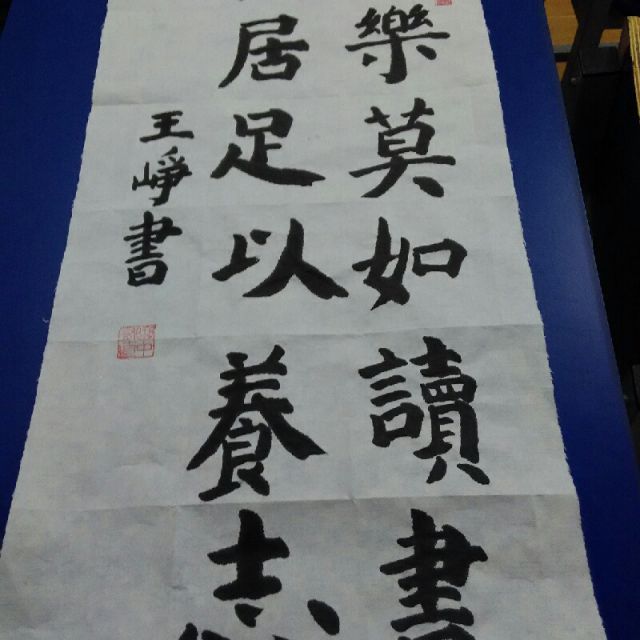 樂莫如讀書
居足以養志
王崢書